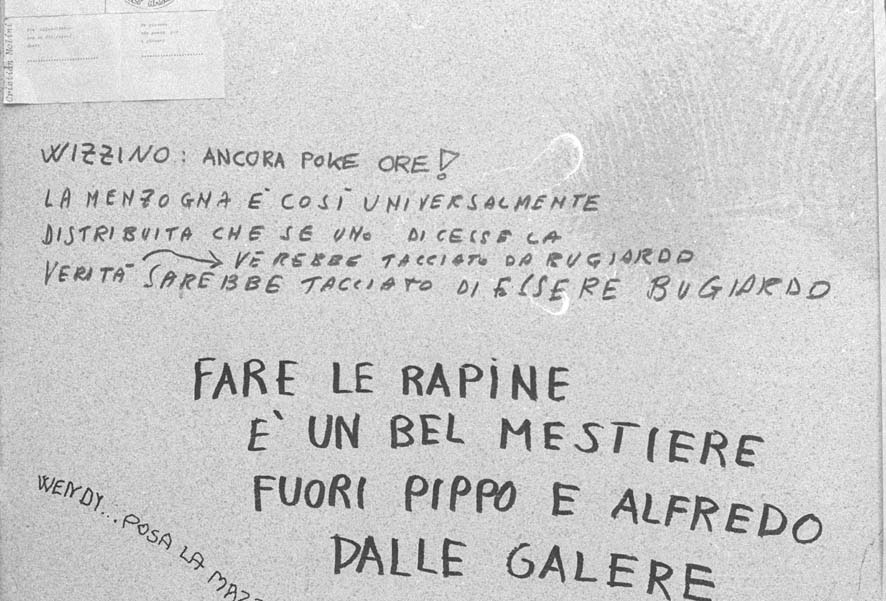 Cristian Nolini
WIZZINO: ANCORA POKE ORE!
LA MENZOGNA È COSÌ UNIVERSALMENTE
DISTRIBUITA CHE SE UNO DICESSE LA
VEREBBE TACCIATO DA BUGIARDO
VERITÀ SAREBBE TACCIATO DI ESSERE BUGIARDO
FARE LE RAPINE
E' UN BEL MESTIERE
FUORI PIPPO E ALFREDO
DALLE GALERE
WENDY... POSA LA